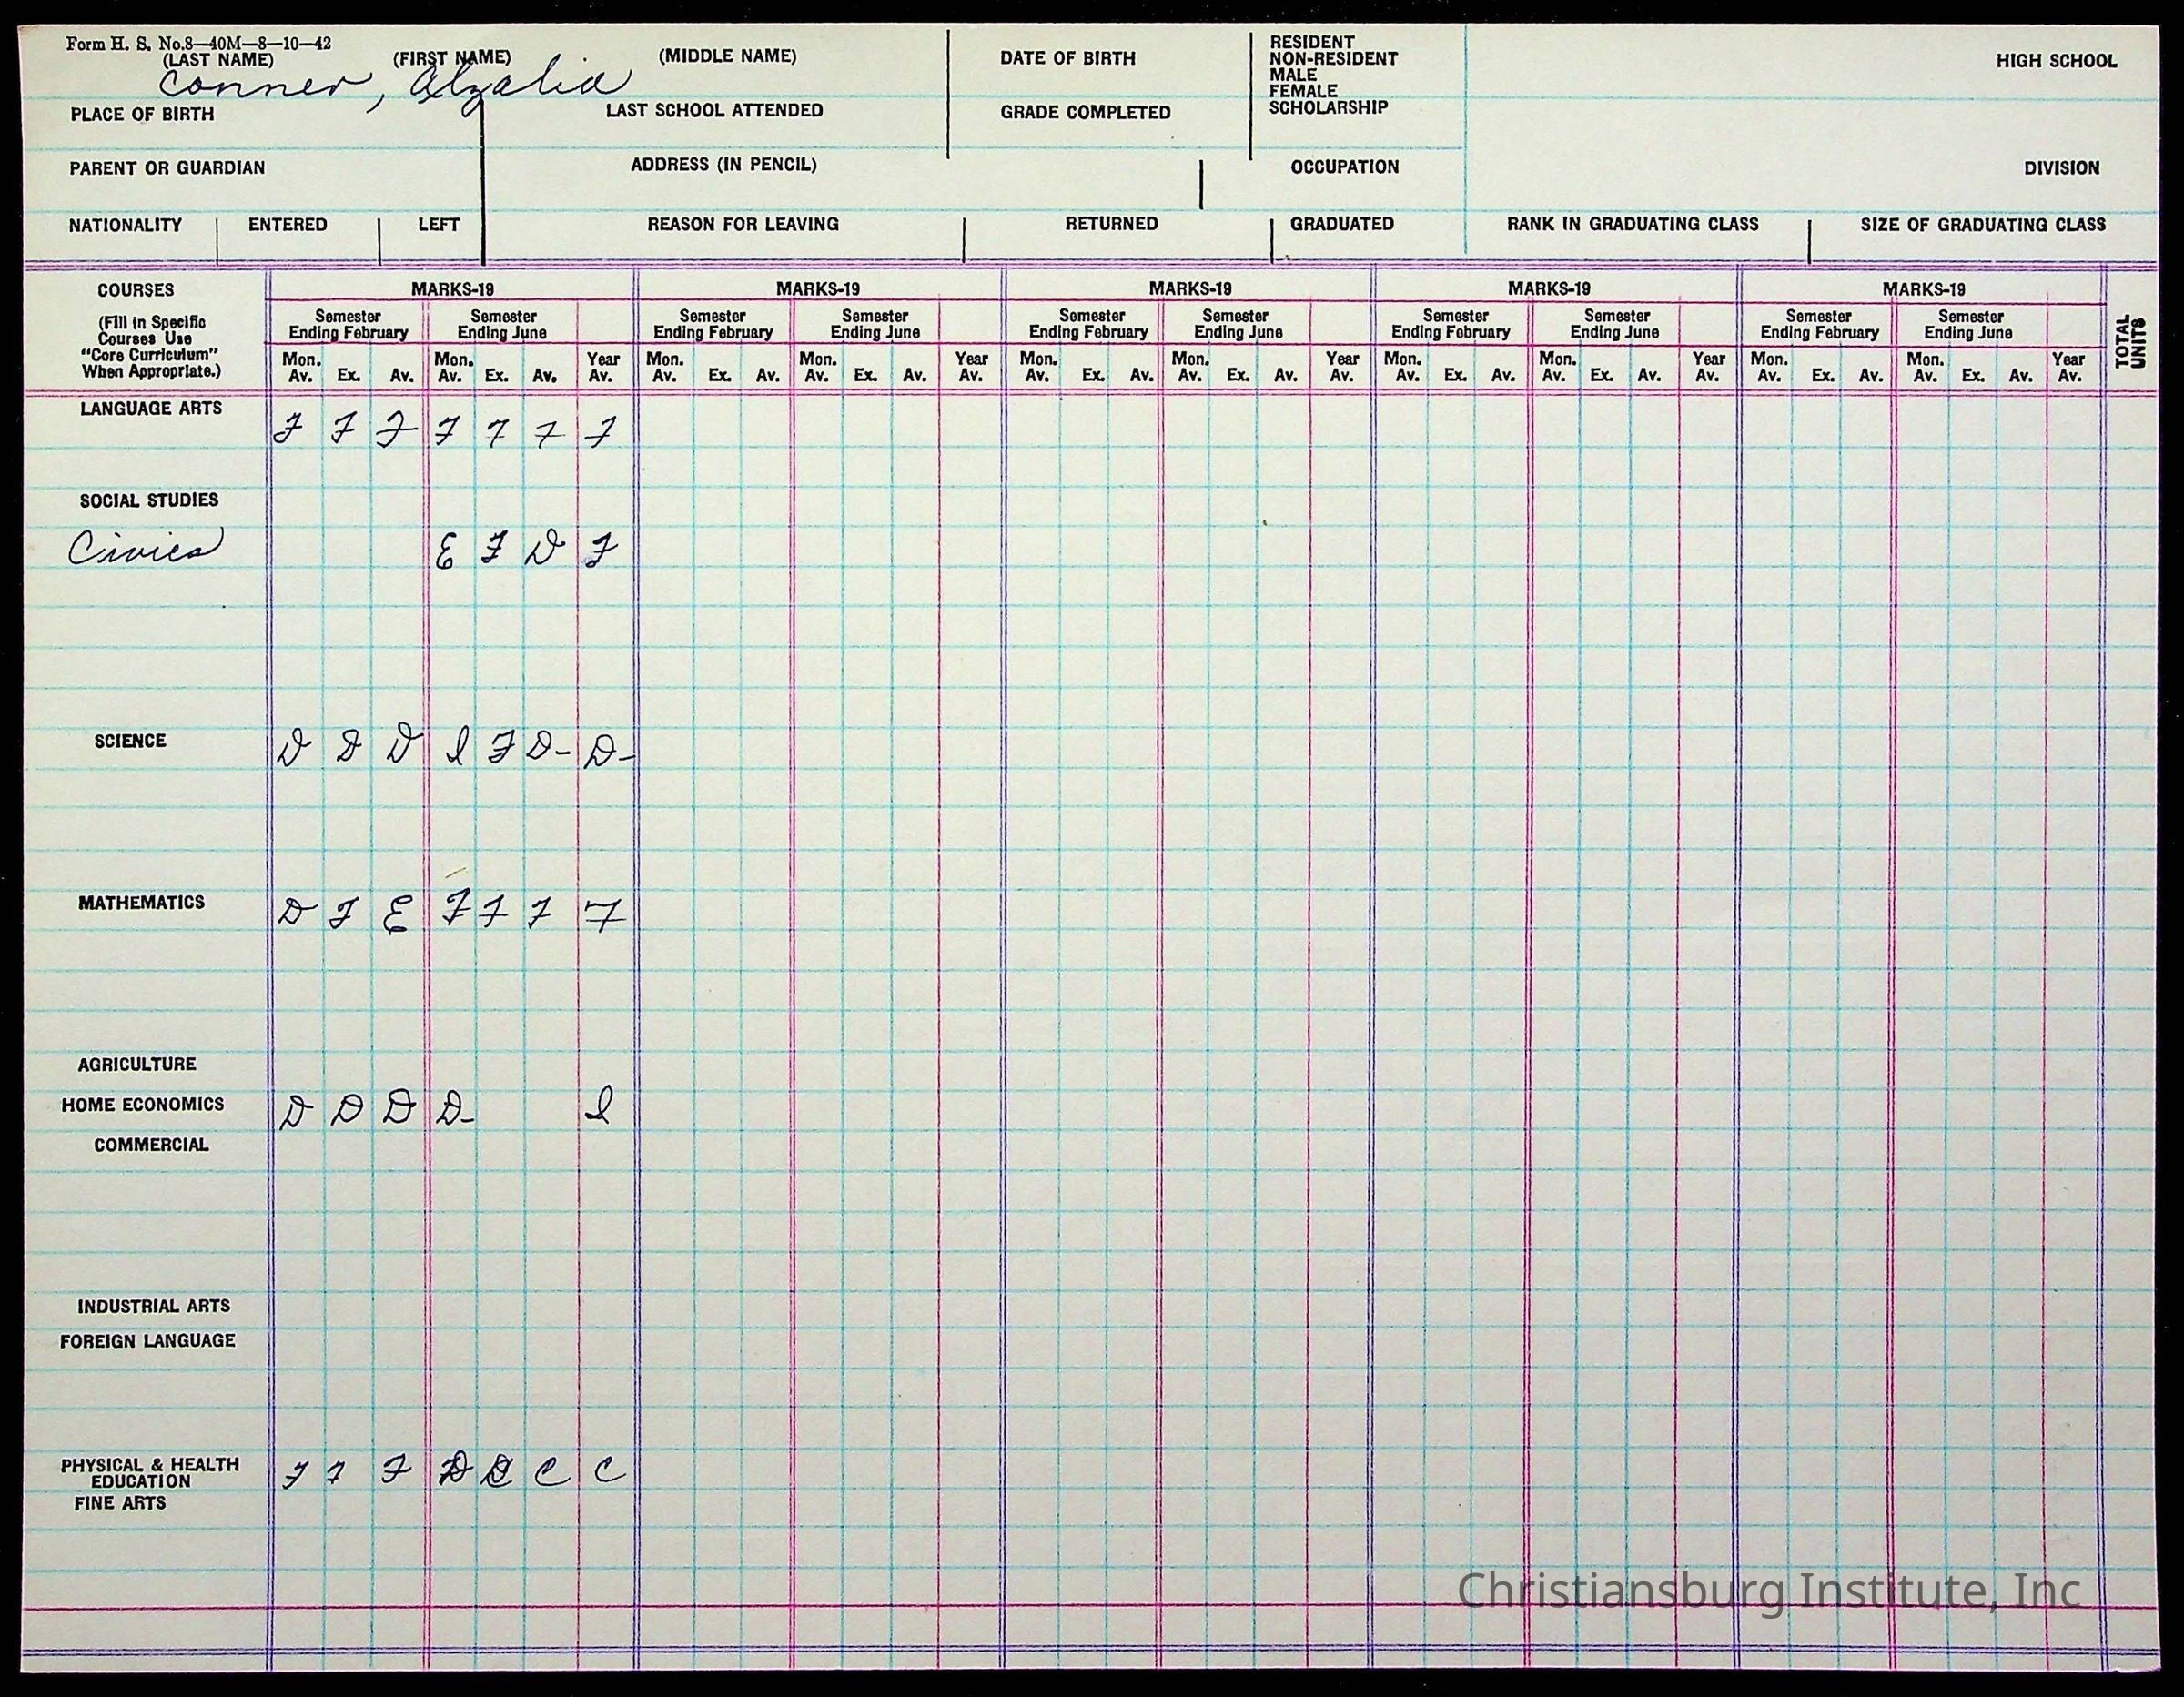 Form H. S. No.8—40M—8—10—42
(LAST NAME) (FIRST NAME) (MIDDLE NAME) DATE OF BIRTH RESIDENT HIGH SCHOOL
NON-RESIDENT
MALE
FEMALE
Conner, Alzalia
PLACE OF BIRTH LAST SCHOOL ATTENDED GRADE COMPLETED SCHOLARSHIP
PARENT OR GUARDIAN ADDRESS (IN PENCIL) OCCUPATION DIVISION
NATIONALITY ENTERED LEFT REASON FOR LEAVING RETURNED GRADUATED RANK IN GRADUATING CLASS SIZE OF GRADUATING CLASS
COURSES MARKS-19 MARKS-19 MARKS-19 MARKS-19 MARKS-19
(Fill in Specific Semester Semester Semester Semester Semester Semester Semester Semester Semester Semester TOTAL
Courses Use Ending February Ending June Ending February Ending June Ending February Ending June Ending February Ending June Ending February Ending June UNITS
"Core Curriculum" Mon. Mon. Year Mon. Mon. Year Mon. Mon. Year Mon. Mon. Year Mon. Mon. Year
When Appropriate.) Av. Ex. Av. Av. Ex. Av. Av. Av. Ex. Av. Av. Ex. Av. Av. Av. Ex. Av. Av. Ex. Av. Av. Av. Ex. Av. Av. Ex. Av. Av. Av. Ex. Av. Av. Ex. Av. Av.
LANGUAGE ARTS F F F F F F F
SOCIAL STUDIES
Civics E F D F
SCIENCE D D D I F D- D-
MATHEMATICS D F E F F F F
AGRICULTURE
HOME ECONOMICS D D D D- I
COMMERCIAL
INDUSTRIAL ARTS
FOREIGN LANGUAGE
PHYSICAL & HEALTH F F F D C C
EDUCATION
FINE ARTS
Christiansburg Institute, Inc